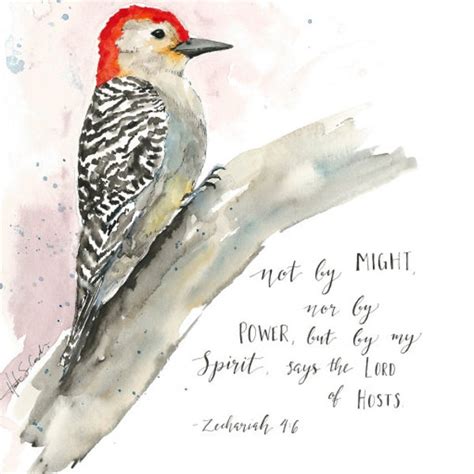 not by MIGHT,
nor by
POWER, but by my
Spirit, says the LORD
of HOSTS.
-Zechariah 4:6